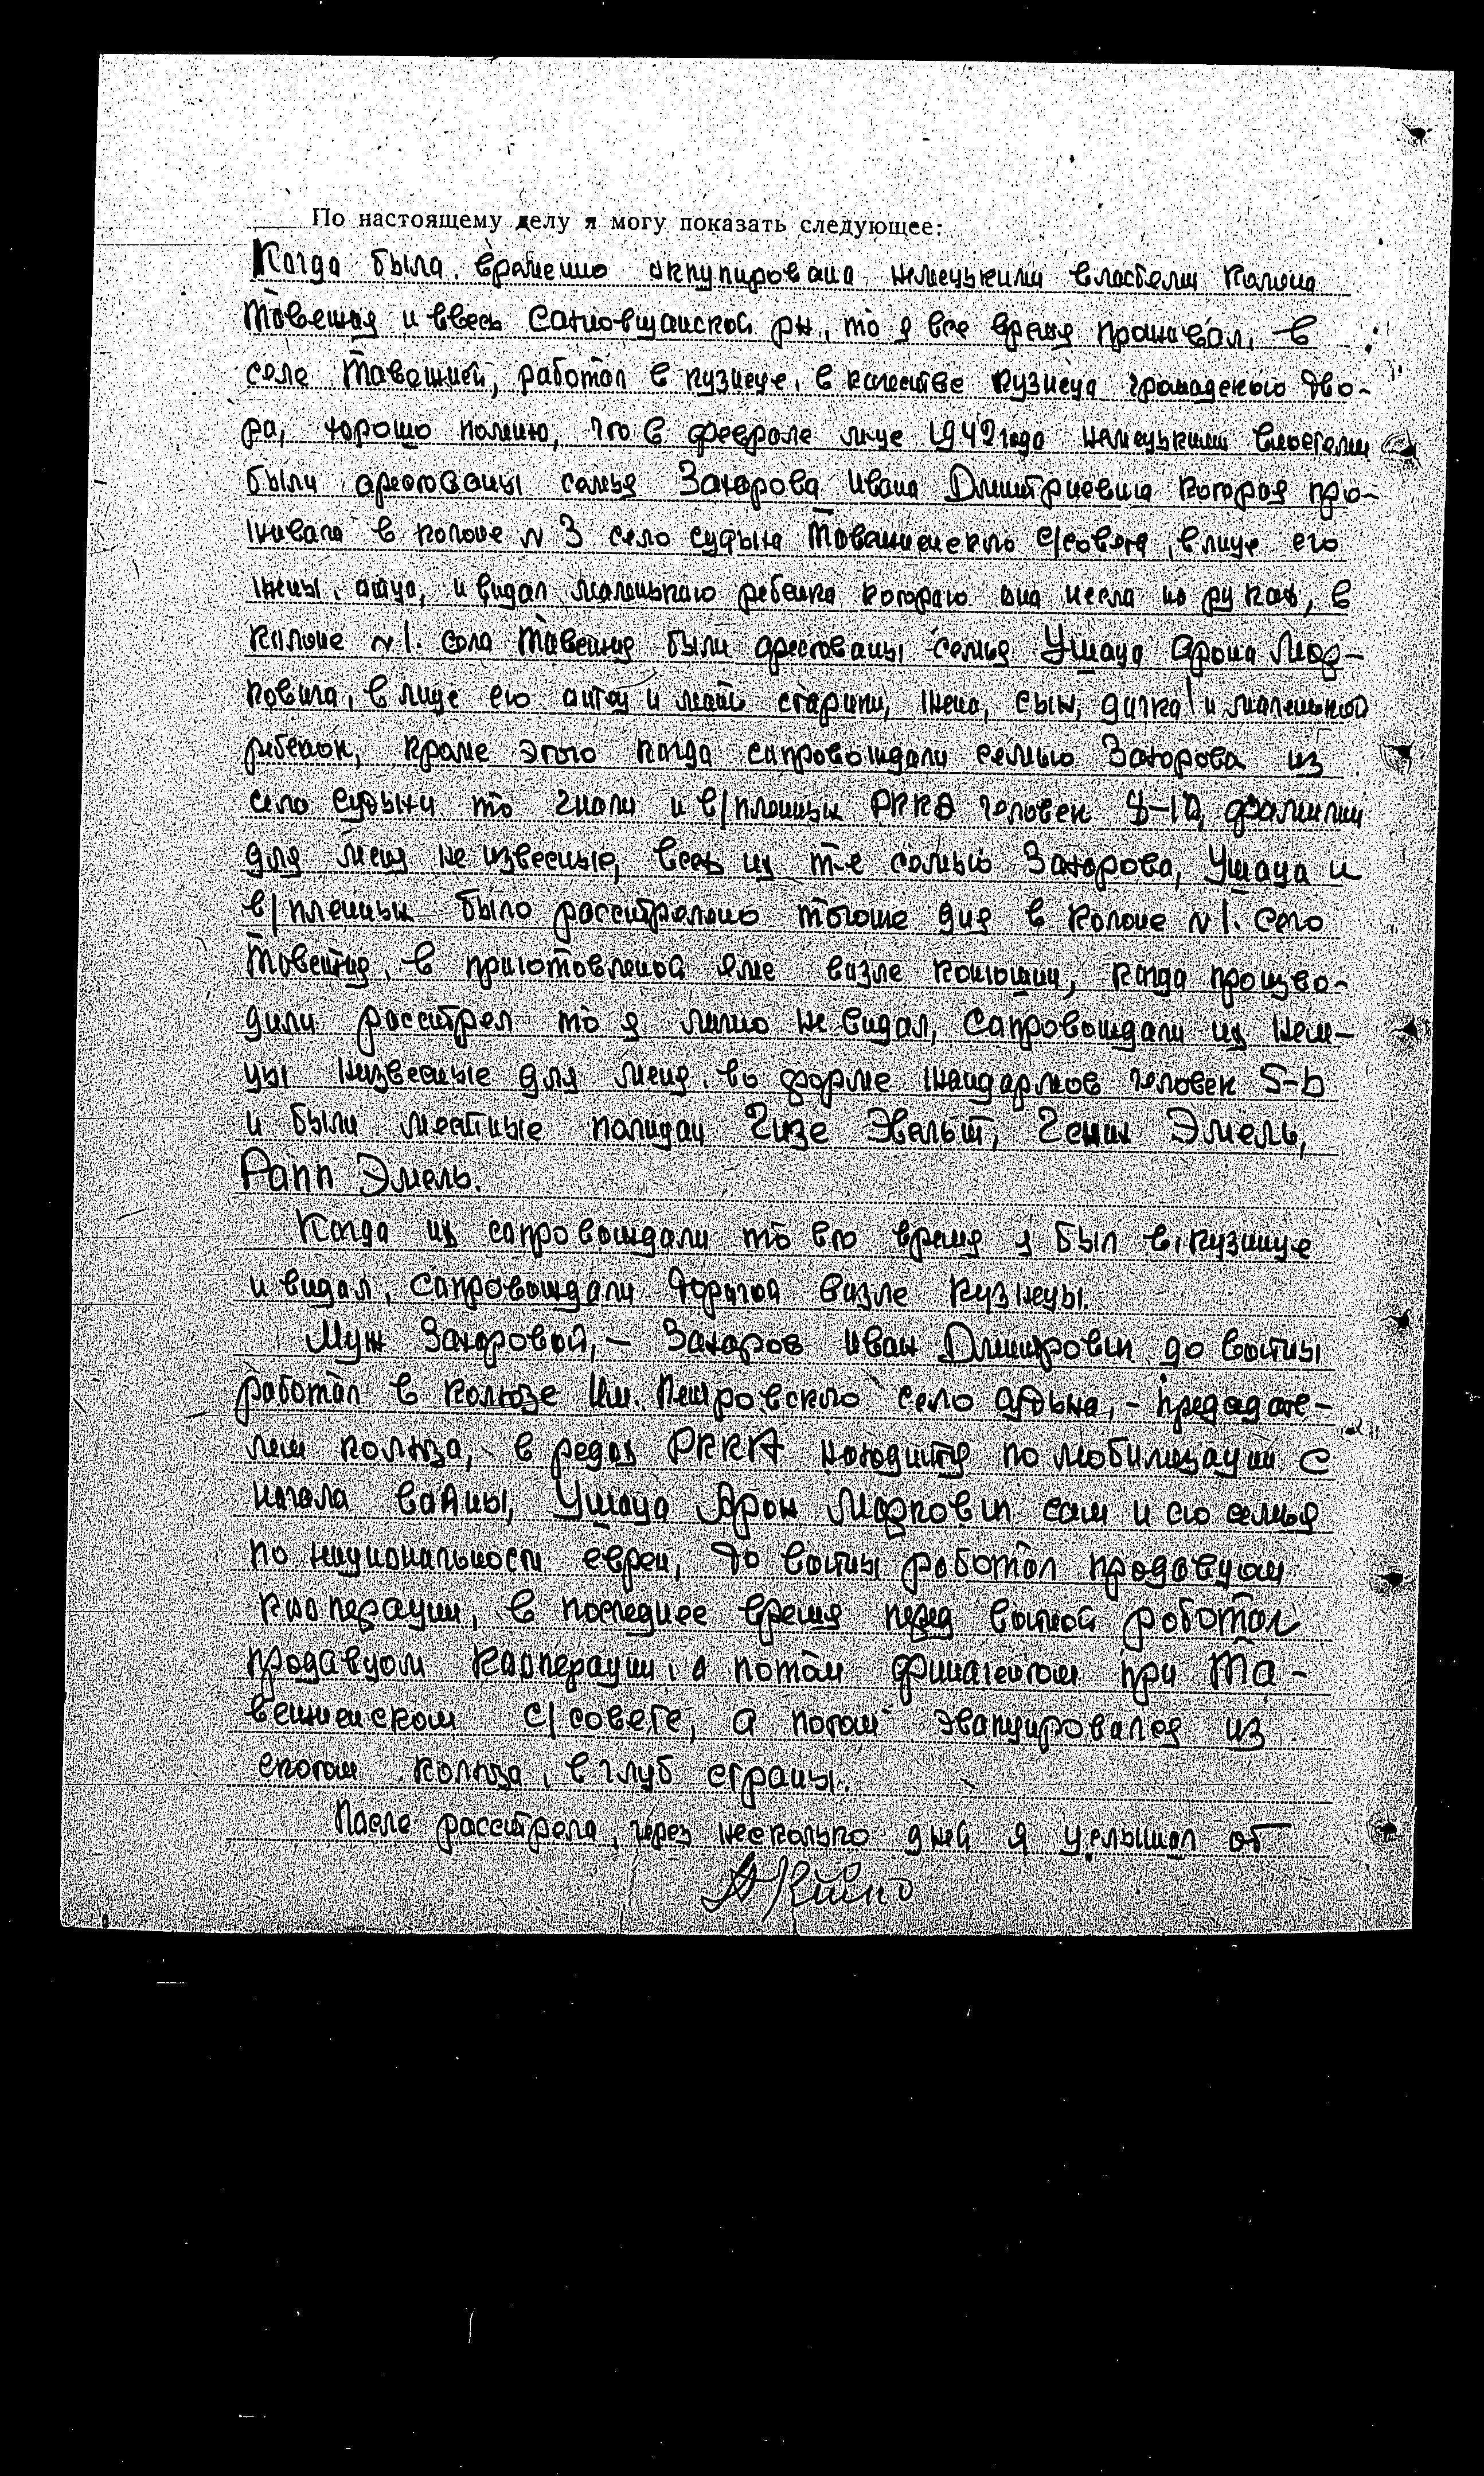 По настоящему делу я могу показать следующее:
Когда была временно аккупирована немецькими властями Колона
Товешия и ввесь Сатновщанской рн., то я все время проживал, в
селе Тавешией, работал в кузнеце, в качестве кузнеца грамадского дво-
ра, хорошо помню, что в феврале м-це 1942 года немецькими властями
были арестованы семья Захарова Ивана Дмитриевича которая про-
живала в колоне N 3 село Судьна Товашиенского с/совета, в лице его
жены, отца, и видал маленькаго ребенка котораго она несла на руках, в
калоне N 1. села Тавешия были арестованы семья Ушаца Арона Мор-
ковича, в лице его отца и мать старики, жена, сын, дочка и маленькой
ребенок, кроме этого когда сапровождали семью Захорова из
село Судьни то гнали и в/пленых РККА человек 8-10, фамилии
для меня не извесные, всех их т-е семью Захорова, Ушаца и
в/пленых было расстреляно тогоже дня в колоне N 1. село
Товешия, в приготовленой яме возле конюшни, когда произво-
дили расстрел то я лично не видал, сапровождали их нем-
цы неизвесные для меня, во форме жандармов человек 5-6
и были местные полицаи Гизе Эвальт, Гених Эмель,
Рапп Эмель.
Когда их сапровождали то вто время я был в кузнице
и видал, сапровождали дорогой возле кузнецы.
Муж Захоровой, – Захоров Иван Дмитрович до войны
работал в колхозе Им. Петровского село Судьна, – предсядате-
лем колхоза, в рядах РККА находится по мобилизации с
начала войны, Ушаца Арон Моркович сам и его семья
по национальности евреи, до войны работал продавцом
кооперации, в последнее время перед войной роботал
продавцом кооперации, а потом финагентом при Та-
вешиенском с/совете, а потом эвакуировался из
скотом колхоза, в глуб страны.
После расстрела, через несколько дней я услышал от